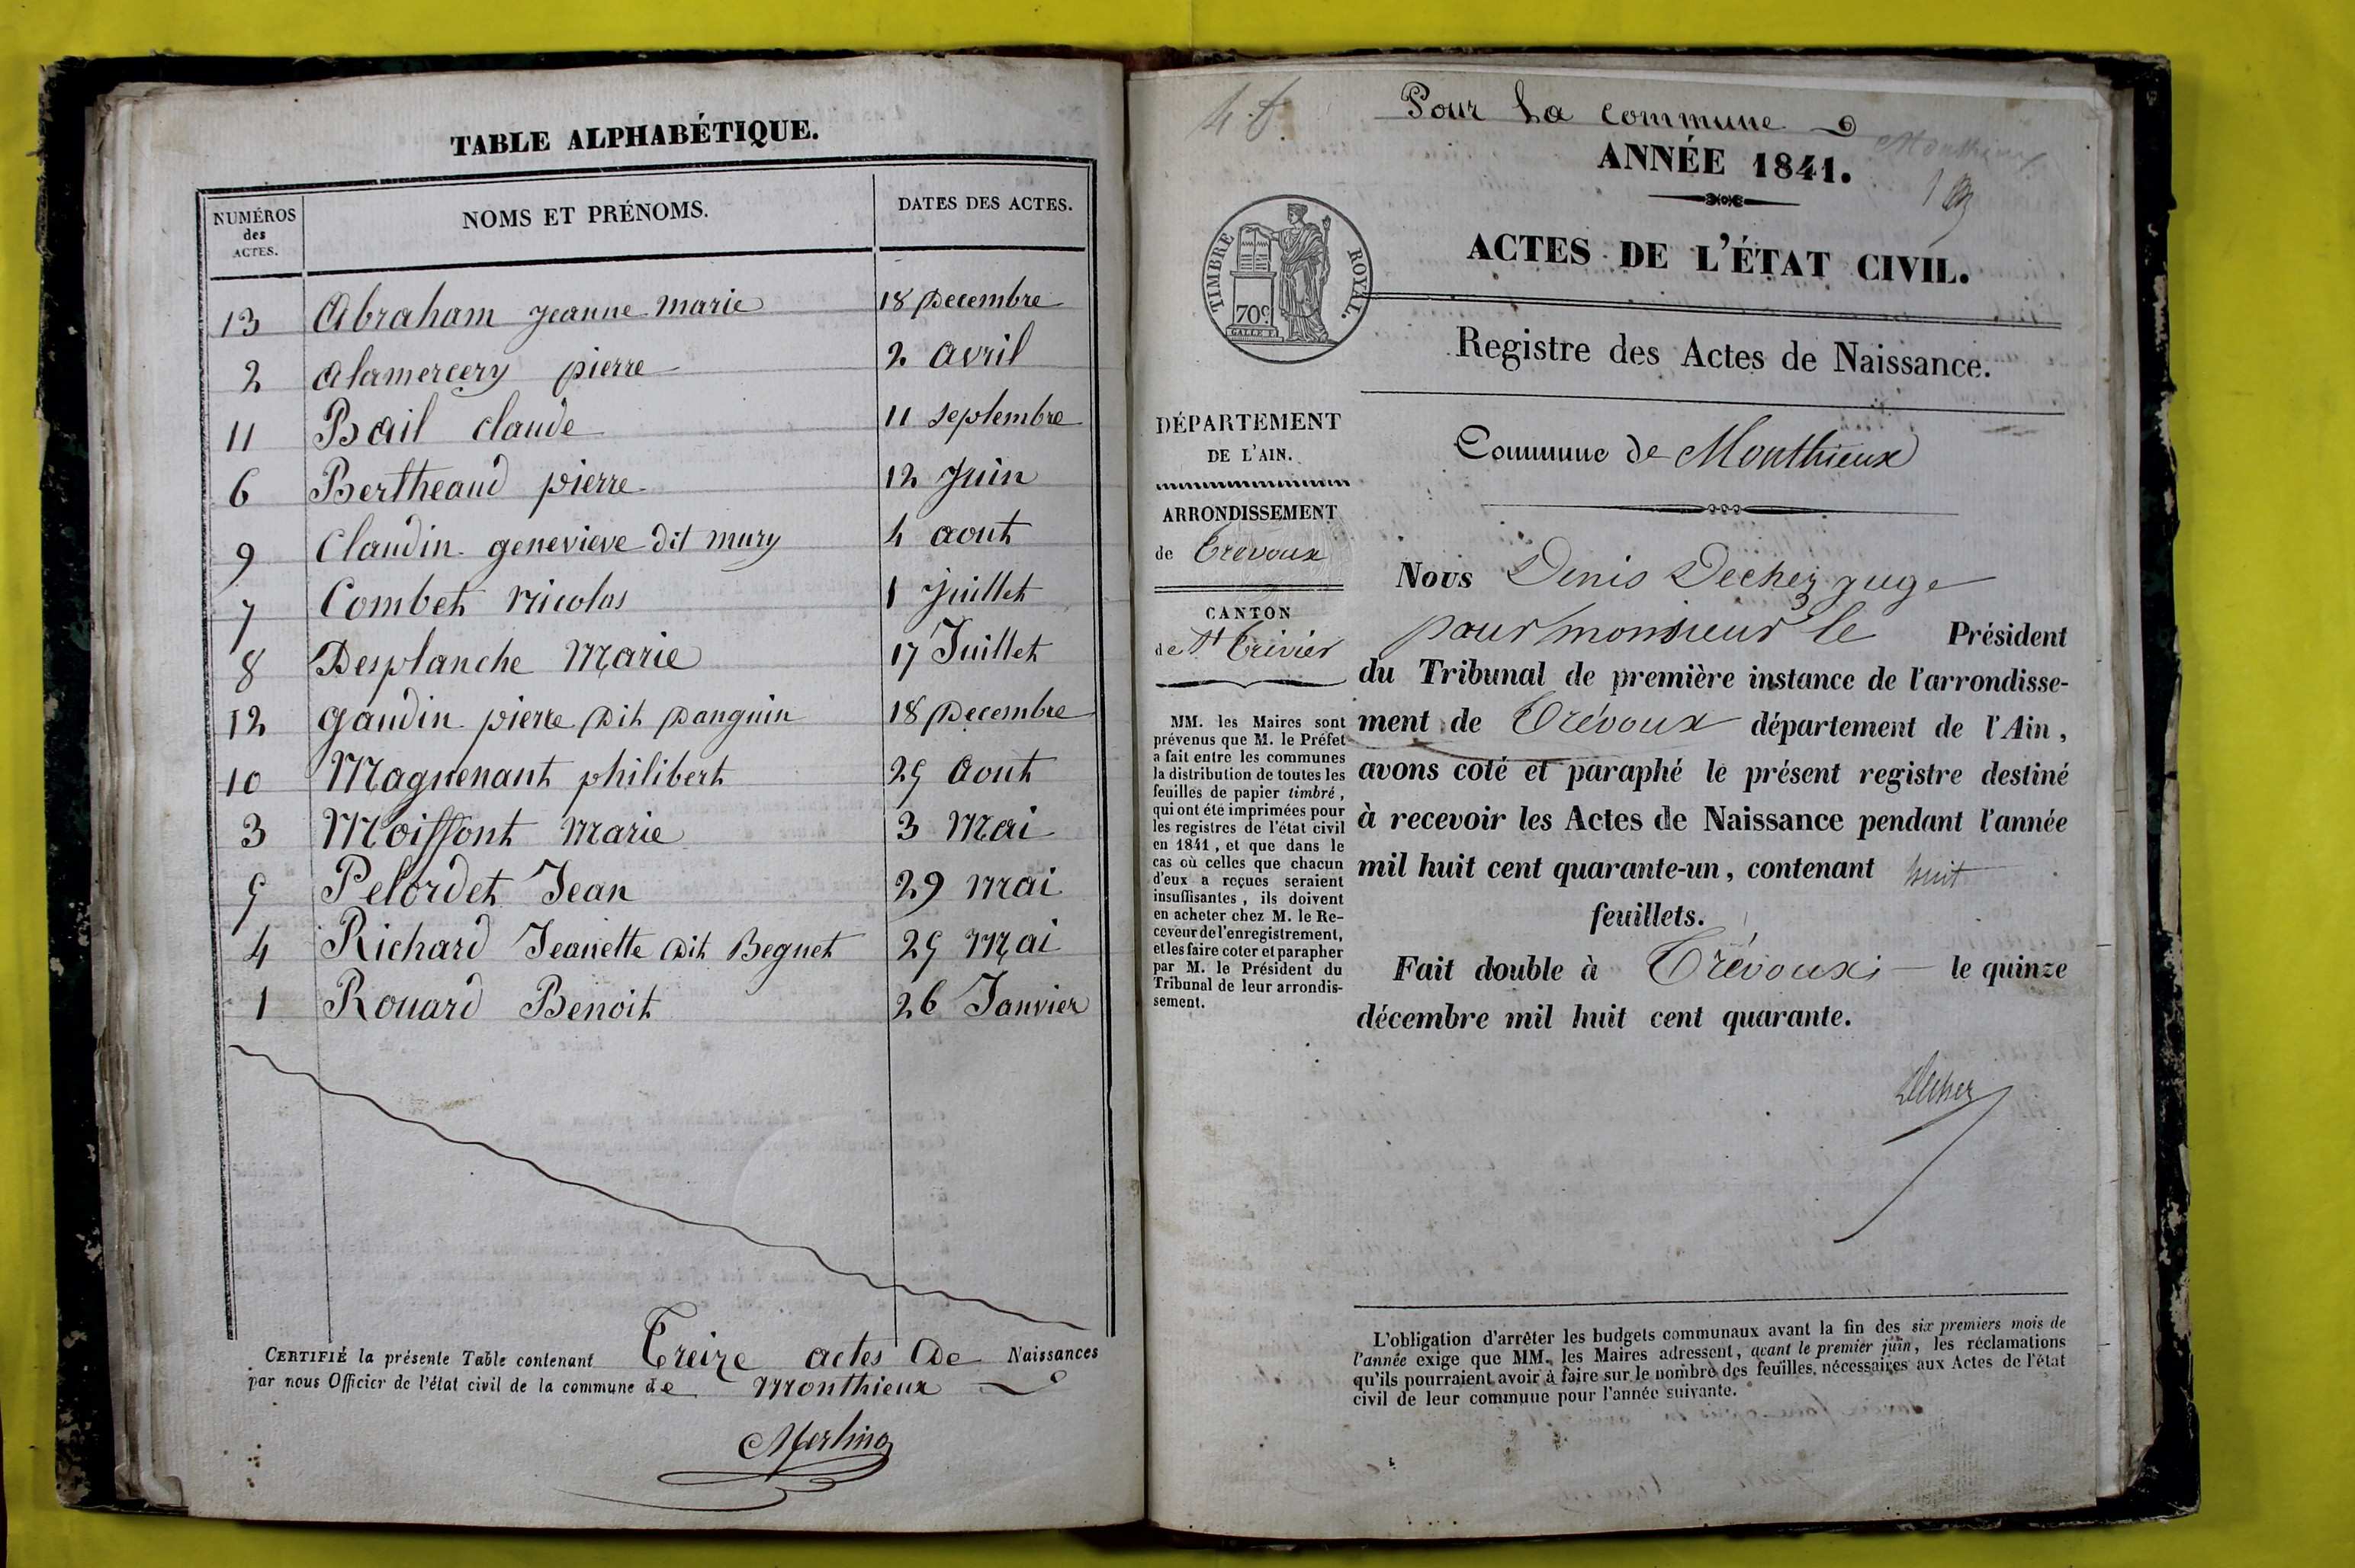 TABLE ALPHABÉTIQUE.
NUMÉROS des ACTES. NOMS ET PRÉNOMS. DATES DES ACTES.
13 Abraham Jeanne Marie 18 Decembre
2 Alamercery pierre 2 avril
11 Bail claude 11 Septembre
6 Bertheaud pierre 12 Juin
9 Claudin genevieve dit mury 4 aout
7 Combet Nicolas 1 Juillet
8 Desplanche Marie 17 Juillet
12 gaudin pierre Dit Danguin 18 Decembre
10 Magnenant philibert 25 Aout
3 Moissont Marie 3 Mai
5 Pelordet Jean 29 Mai
4 Richard Jeanette Dit Begnet 25 Mai
1 Rouard Benoit 26 Janvier
CERTIFIÉ la présente Table contenant Treize actes De Naissances
par nous Officier de l'état civil de la commune de Monthieux
Merlino
4 f.
Pour La commune
Monthieux
ANNÉE 1841.
TIMBRE ROYAL.
70c
ACTES DE L'ÉTAT CIVIL.
Registre des Actes de Naissance.
Commune de Monthieux
DÉPARTEMENT
DE L'AIN.
ARRONDISSEMENT
de Trevoux
CANTON
de St Trivier
MM. les Maires sont
prévenus que M. le Préfet
a fait entre les communes
la distribution de toutes les
feuilles de papier timbré,
qui ont été imprimées pour
les registres de l'état civil
en 1841, et que dans le
cas où celles que chacun
d'eux a reçues seraient
insuffisantes, ils doivent
en acheter chez M. le Re-
ceveur de l'enregistrement,
et les faire coter et parapher
par M. le Président du
Tribunal de leur arrondis-
sement.
Nous Denis Decher juge
pour monsieur le Président
du Tribunal de première instance de l'arrondisse-
ment de Trévoux département de l'Ain,
avons coté et paraphé le présent registre destiné
à recevoir les Actes de Naissance pendant l'année
mil huit cent quarante-un, contenant huit
feuillets.
Fait double à Trévoux le quinze
décembre mil huit cent quarante.
Decher
L'obligation d'arrêter les budgets communaux avant la fin des six premiers mois de
l'année exige que MM. les Maires adressent, avant le premier juin, les réclamations
qu'ils pourraient avoir à faire sur le nombre des feuilles, nécessaires aux Actes de l'état
civil de leur commune pour l'année suivante.